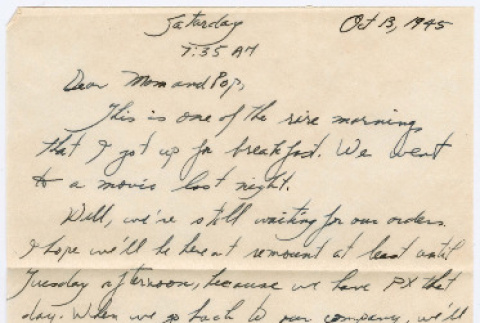 Saturday Oct 13, 1945
7:35 AM
Dear Mom and Pop,
This is one of the rire morning
that I got up for breakfast. We went
to a movie last night.
Well, we're still waiting for our orders.
I hope we'll be here at remount at least until
Tuesday afternoon, because we have PX that
day. When we go back to our company, we'll